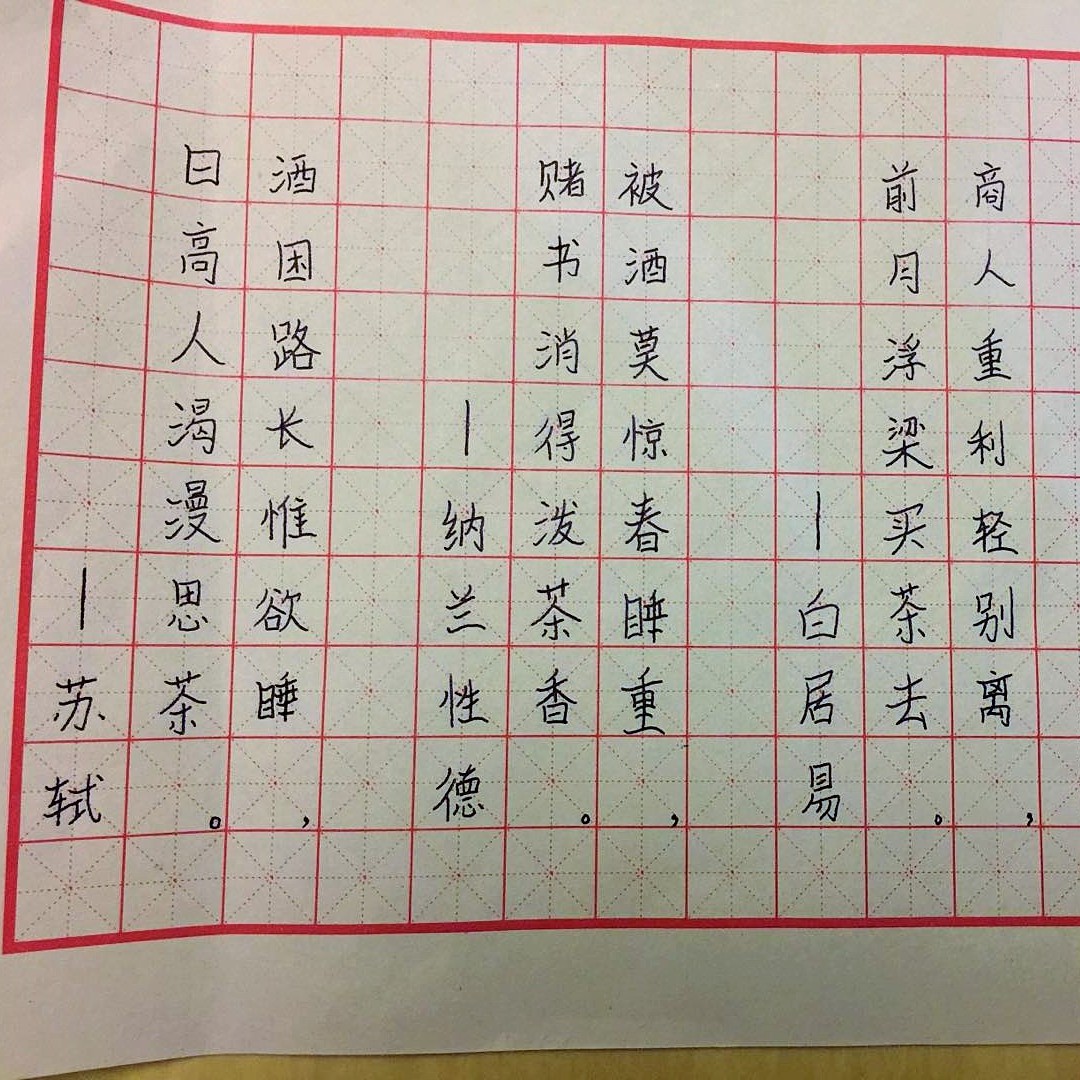 商人重利轻别离，
前月浮梁买茶去。
—白居易
被酒莫惊春睡重，
赌书消得泼茶香。
—纳兰性德
酒困路长惟欲睡，
日高人渴漫思茶。
—苏轼